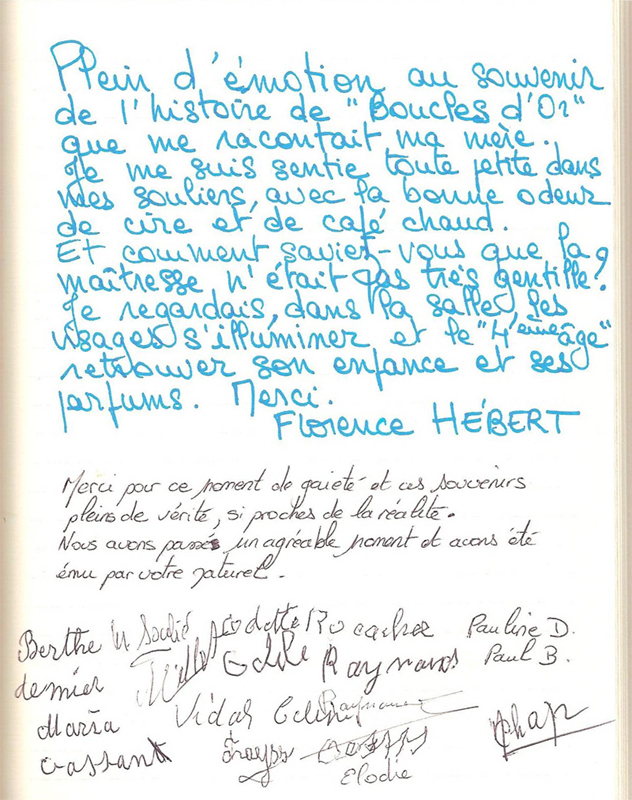 Plein d'émotion au souvenir
de l'histoire de "Boucles d'Or"
que me racontait ma mère.
Je me suis sentie toute petite dans
mes souliers, avec la bonne odeur
de cire et de café chaud.
Et comment saviez-vous que la
maîtresse n'était pas très gentille?
Je regardais, dans la salle, les
visages s'illuminer et le "4ème âge"
retrouver son enfance et ses
parfums. Merci.
Florence HÉBERT
Merci pour ce moment de gaieté et ces souvenirs
pleins de vérité, si proches de la réalité.
Nous avons passés un agréable moment et avons été
ému par votre naturel.
Berthe M Soulié Odette Rocacher Pauline D.
dernier Raymond Paul B.
Maria Vidal Raymond
Cassant Frayss Chap
Elodie